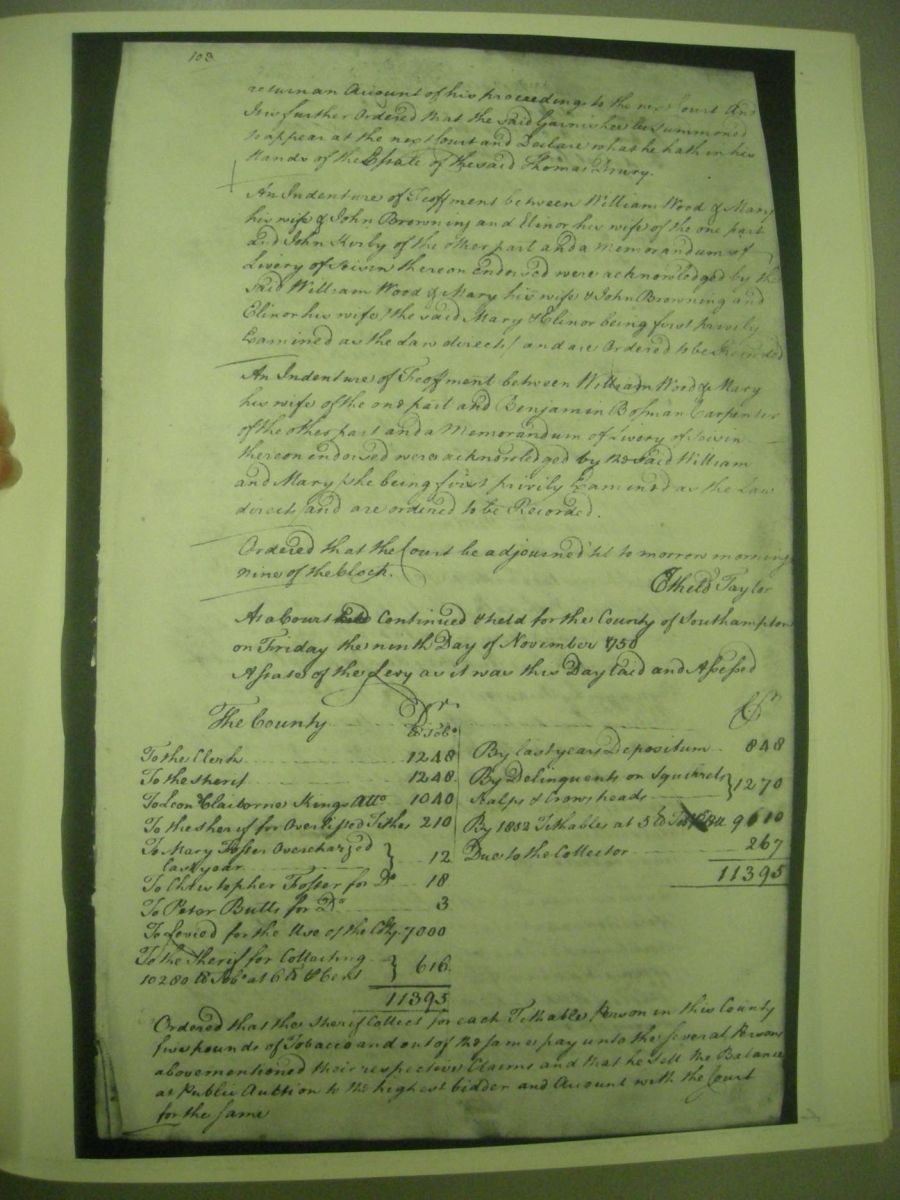 103
return an Account of his proceedings to the next Court And
It is further Ordered that the said Garnishee be summoned
to appear at the next Court and Declare what he hath in his
Hands of the Estate of the said Thomas Drury.
An Indenture of Feoffment between William Wood & Mary
his wife & John Browning and Elinor his wife of the one part
and John Kirby of the other part and a Memorandum of
Livery of Seisin thereon endorsed were acknowledged by the
said William Wood & Mary his wife & John Browning and
Elinor his wife (the said Mary & Elinor being first privily
Examined as the Law directs) and are Ordered to be Recorded
An Indenture of Feoffment between William Wood & Mary
his wife of the one part and Benjamin Bosman Carpenter
of the other part and a Memorandum of Livery of Seisin
thereon endorsed were acknowledged by the said William
and Mary (she being first privily Examined as the Law
directs) and are ordered to be Recorded.
Ordered that the Court be adjourned til to morrow morning
nine of the Clock.
Etheld Taylor
At a Court Continued & held for the County of Southampton
on Friday the ninth Day of November 1750
A state of the Levy as it was this Day laid and Assessed
The County Dr
Cr
lb Tobo
To the Clerk 1248
To the sherif 1248
To Leon Claiborne Kings Atto 1040
To the sherif for Overlisted Tithes 210
To Mary Foster Overcharged
last year } 12
To Christopher Fosser for Do 18
To Peter Butts for Do 3
To Levied for the Use of the Cty 7000
To the Sherif for Collecting
10280 lb Tobo at 6 lb P Cent } 616
11395
By last years Depositum 848
By Delinquents on Squirrels
Scalps & Crows heads } 1270
By 1852 Tithables at 5 lb 9010
Due to the Collector 267
11395
Ordered that the Sherif Collect for each Tithable Person in this County
five pounds of Tobacco and out of the same pay unto the several Persons
abovementioned their respective Claims and that he sell the Balance
at Public Auction to the highest bidder and Account with the Court
for the same